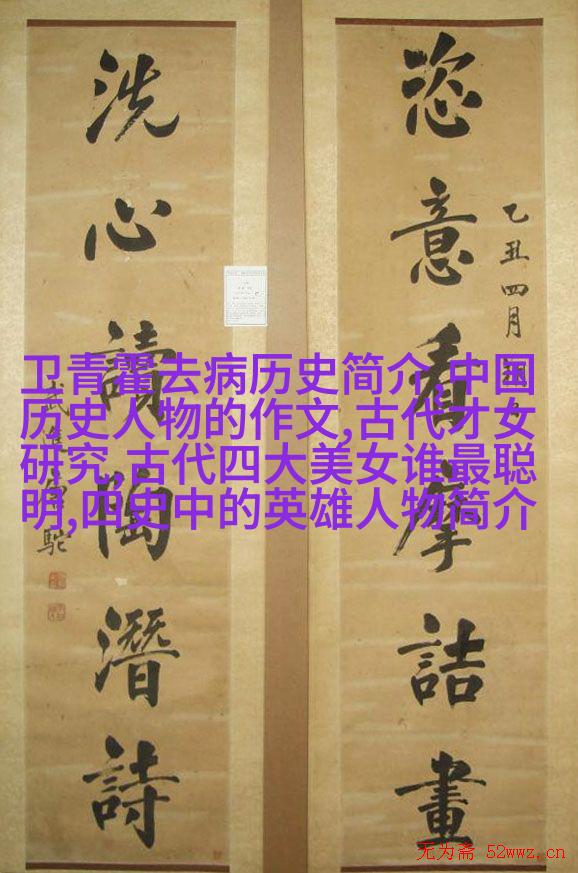 恣意看摩詰畫
乙丑四月
洗心讀陶潛詩
駝
卫青霍去病历史简介,中国
历史人物的作文,古代才女
研究,古代四大美女谁最聪
明,四史中的英雄人物简介
无为斋 52wwz.cn